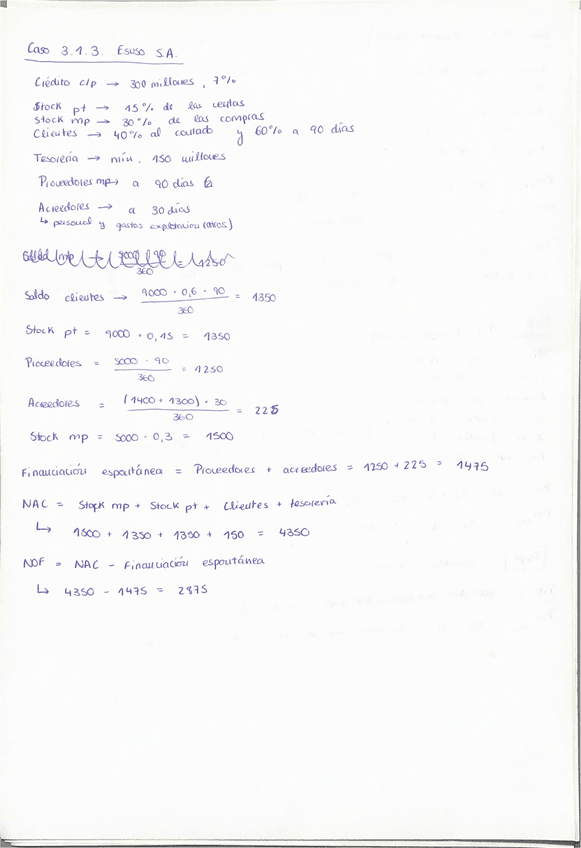 Caso 3.1.3. Esuso S.A.
Crédito c/p → 300 millones, 7%
Stock pt → 15% de las ventas
Stock mp → 30% de las compras
Clientes → 40% al contado y 60% a 90 días
Tesorería → mín. 150 millones
Proveedores mp → a 90 días
Acreedores → a 30 días
↳ personal y gastos explotación (otros)
Saldo clientes → 9000 · 0,6 · 90 / 360 = 1350
Stock pt = 9000 · 0,15 = 1350
Proveedores = 5000 · 90 / 360 = 1250
Acreedores = (1400 + 1300) · 30 / 360 = 225
Stock mp = 5000 · 0,3 = 1500
Financiación espontánea = Proveedores + acreedores = 1250 + 225 = 1475
NAC = Stock mp + Stock pt + Clientes + tesorería
↳ 1500 + 1350 + 1350 + 150 = 4350
NOF = NAC - Financiación espontánea
↳ 4350 - 1475 = 2875